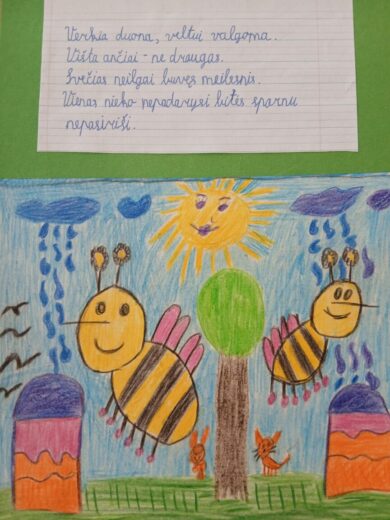 Verkia duona, veltui valgoma.
Višta ančiai - ne draugas.
Svečias neilgai buvęs meilesnis.
Vienas nieko nepadarysi bitės sparnu
nepasirisi.